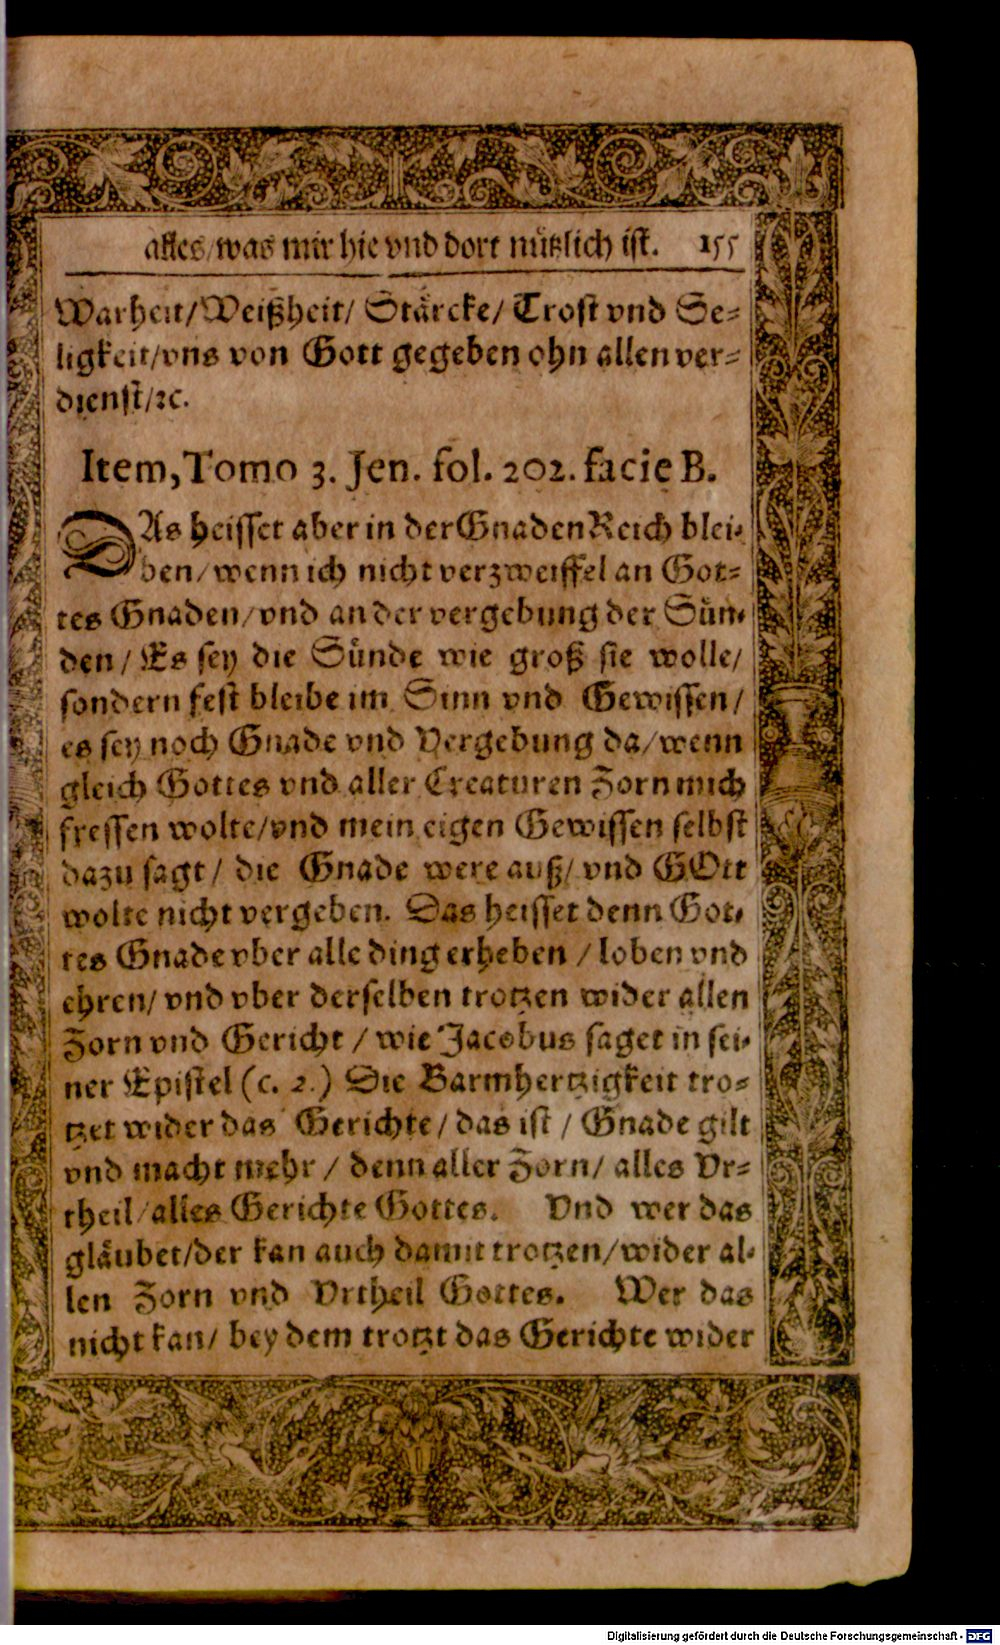 alles/was mir hie vnd dort nützlich ist. 155
Warheit/Weißheit/ Stärcke/ Trost vnd Se-
ligkeit/vns von Gott gegeben ohn allen ver-
dienst/ꝛc.
Item, Tomo 3. Jen. fol. 202. facie B.
DAs heisset aber in der Gnaden Reich blei-
ben/wenn ich nicht verzweiffel an Got-
tes Gnaden/vnd an der vergebung der Sün-
den/ Es sey die Sünde wie groß sie wolle/
sondern fest bleibe im Sinn vnd Gewissen/
es sey noch Gnade vnd Vergebung da/wenn
gleich Gottes vnd aller Creaturen Zorn mich
fressen wolte/vnd mein eigen Gewissen selbst
dazu sagt/ die Gnade were auß/ vnd GOtt
wolte nicht vergeben. Das heisset denn Got-
tes Gnade vber alle ding erheben / loben vnd
ehren/ vnd vber derselben trotzen wider allen
Zorn vnd Gericht / wie Jacobus saget in sei-
ner Epistel (c. 2.) Die Barmhertzigkeit tro-
tzet wider das Gerichte/ das ist / Gnade gilt
vnd macht mehr / denn aller Zorn/ alles Vr-
theil/alles Gerichte Gottes. Vnd wer das
gläubet/der kan auch damit trotzen/wider al-
len Zorn vnd Vrtheil Gottes. Wer das
nicht kan/ bey dem trotzt das Gerichte wider
Digitalisierung gefördert durch die Deutsche Forschungsgemeinschaft - DFG